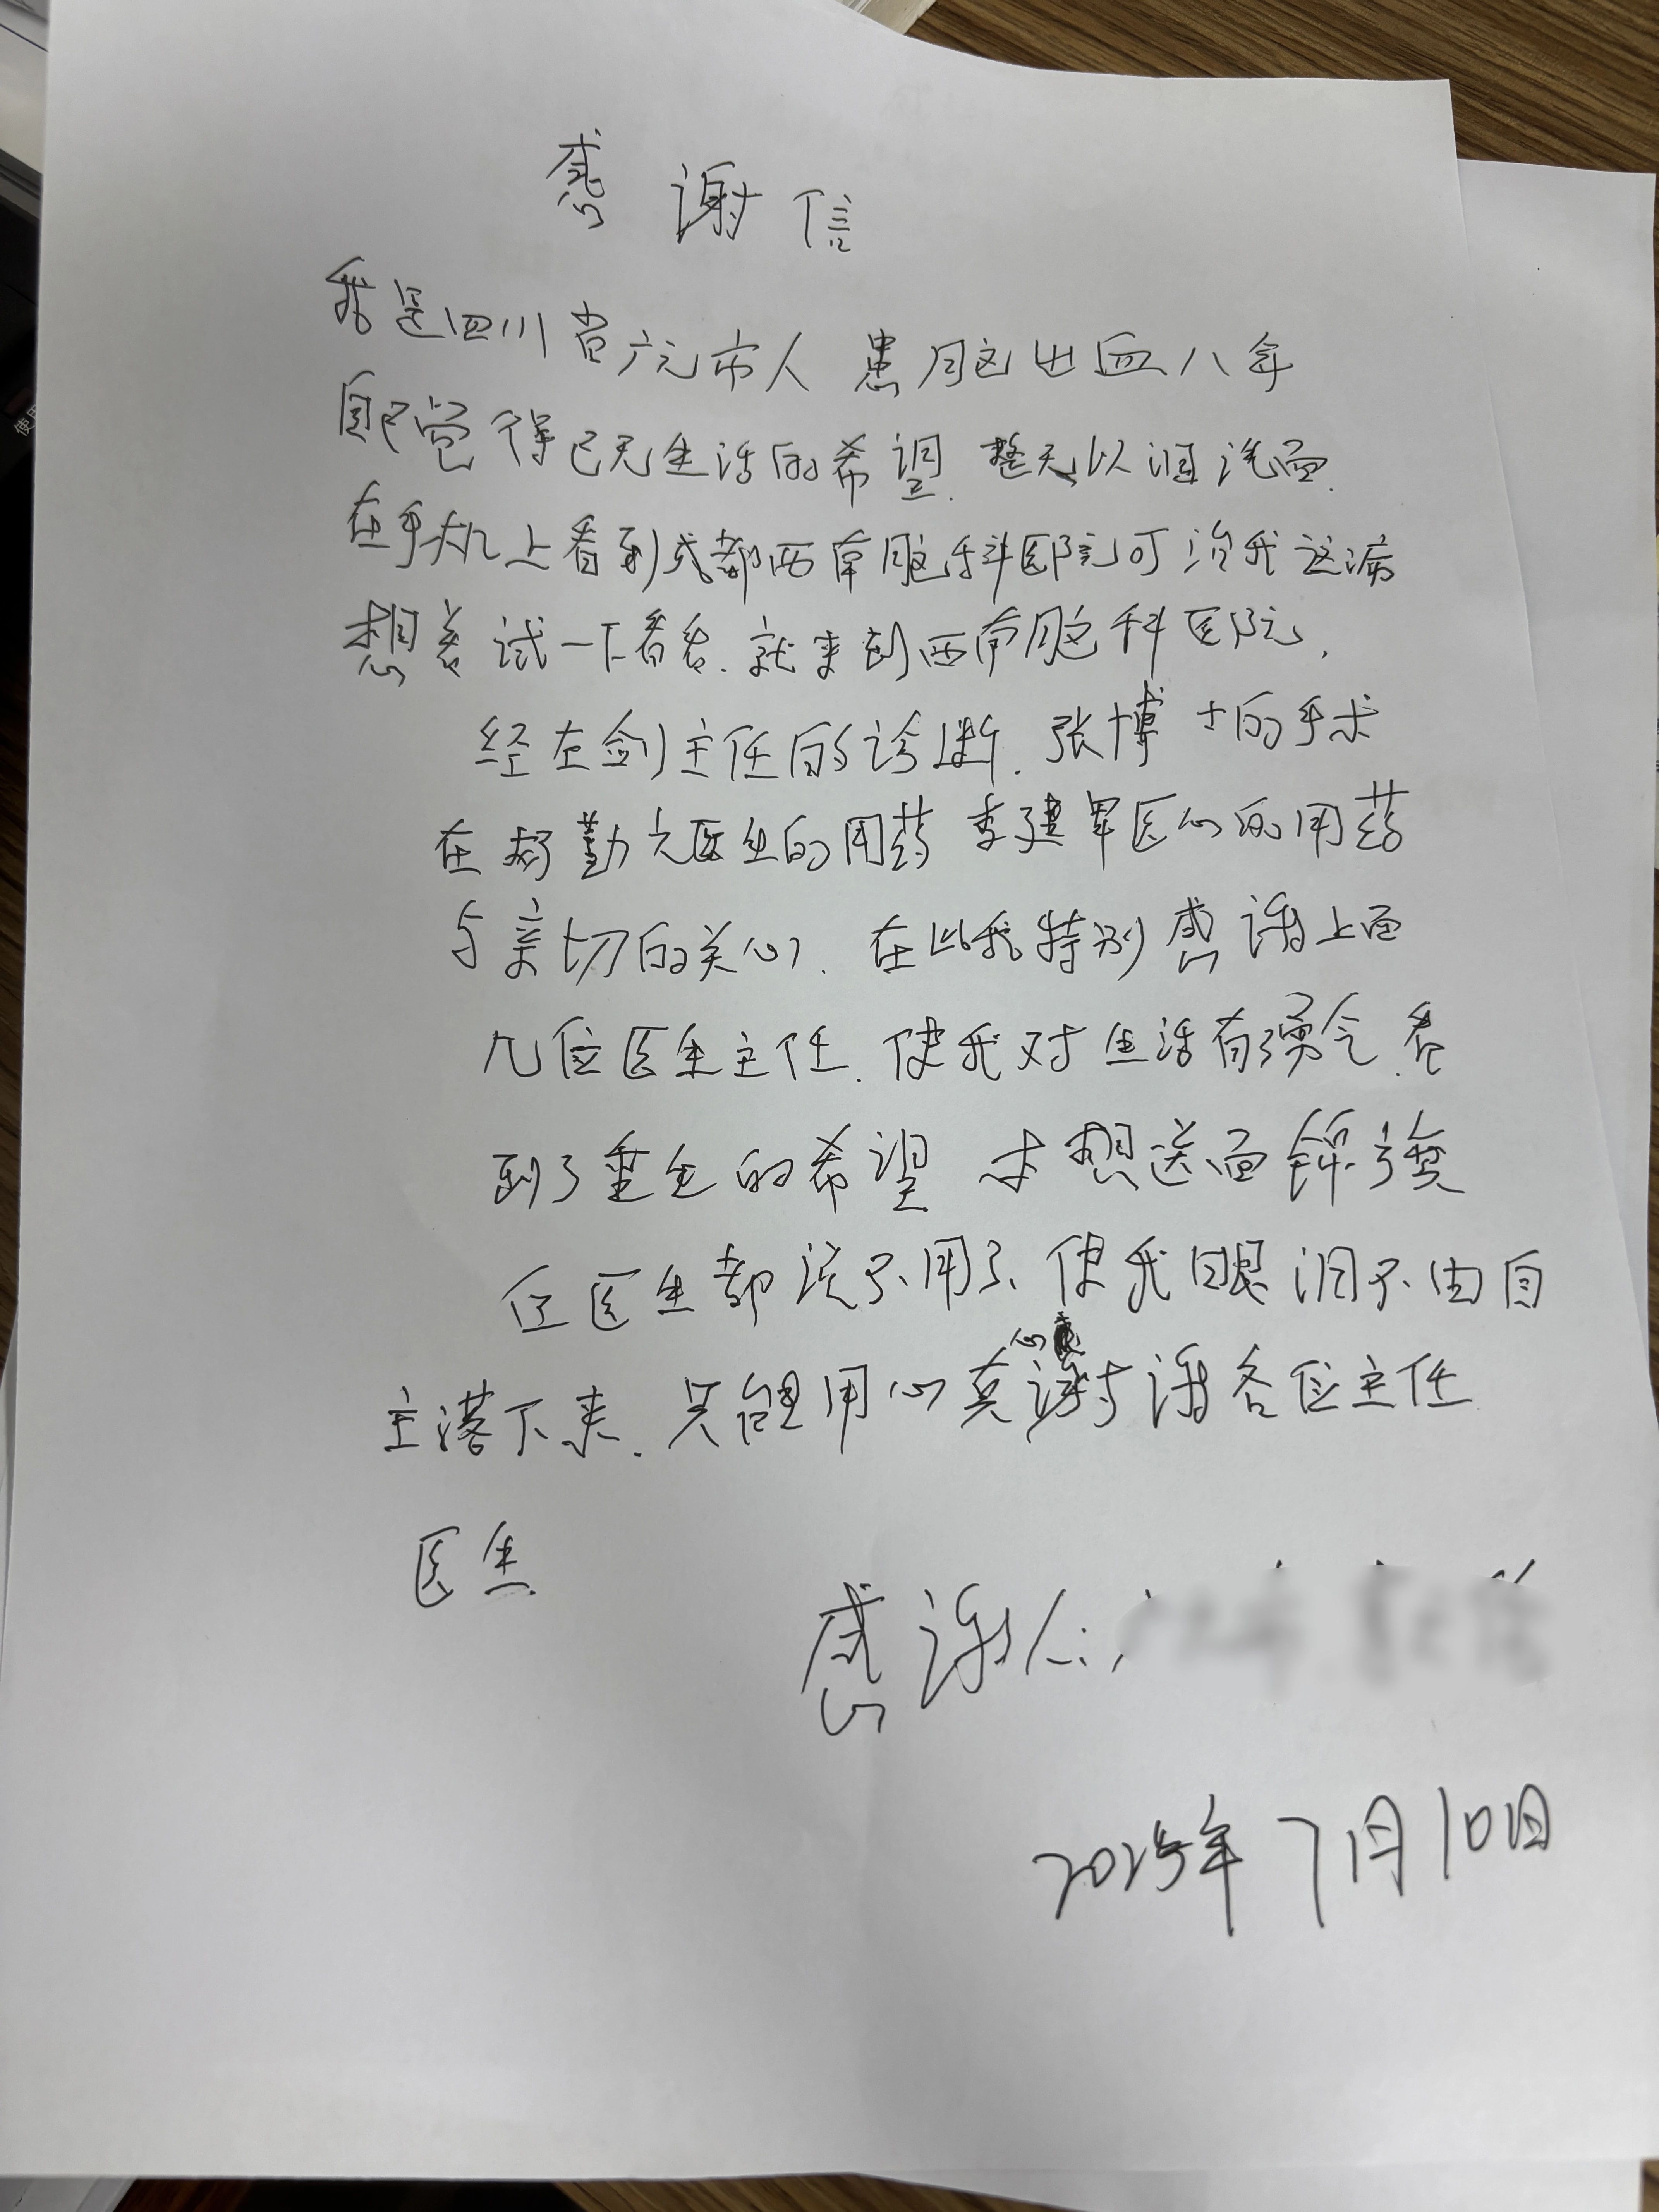 感谢信
我是四川省广元市人 患脑出血八年
自己觉得已无生活的希望.整天以泪洗面.
在手机上看到成都西南脑科医院可治我这病
想着试一下看看.就来到西南脑科医院,
经左剑主任的诊断.张博士的手术
在 勤 医生的用药 李建军医心的用药
与亲切的关心.在此我特别感谢上面
几位医生主任.使我对生活有勇气.看
到了重生的希望 本想送面锦旗
位医生都说不用了、使我眼泪不由自
主落下来.只能用心真 谢各位主任
医生
感谢人:
2025年7月10日